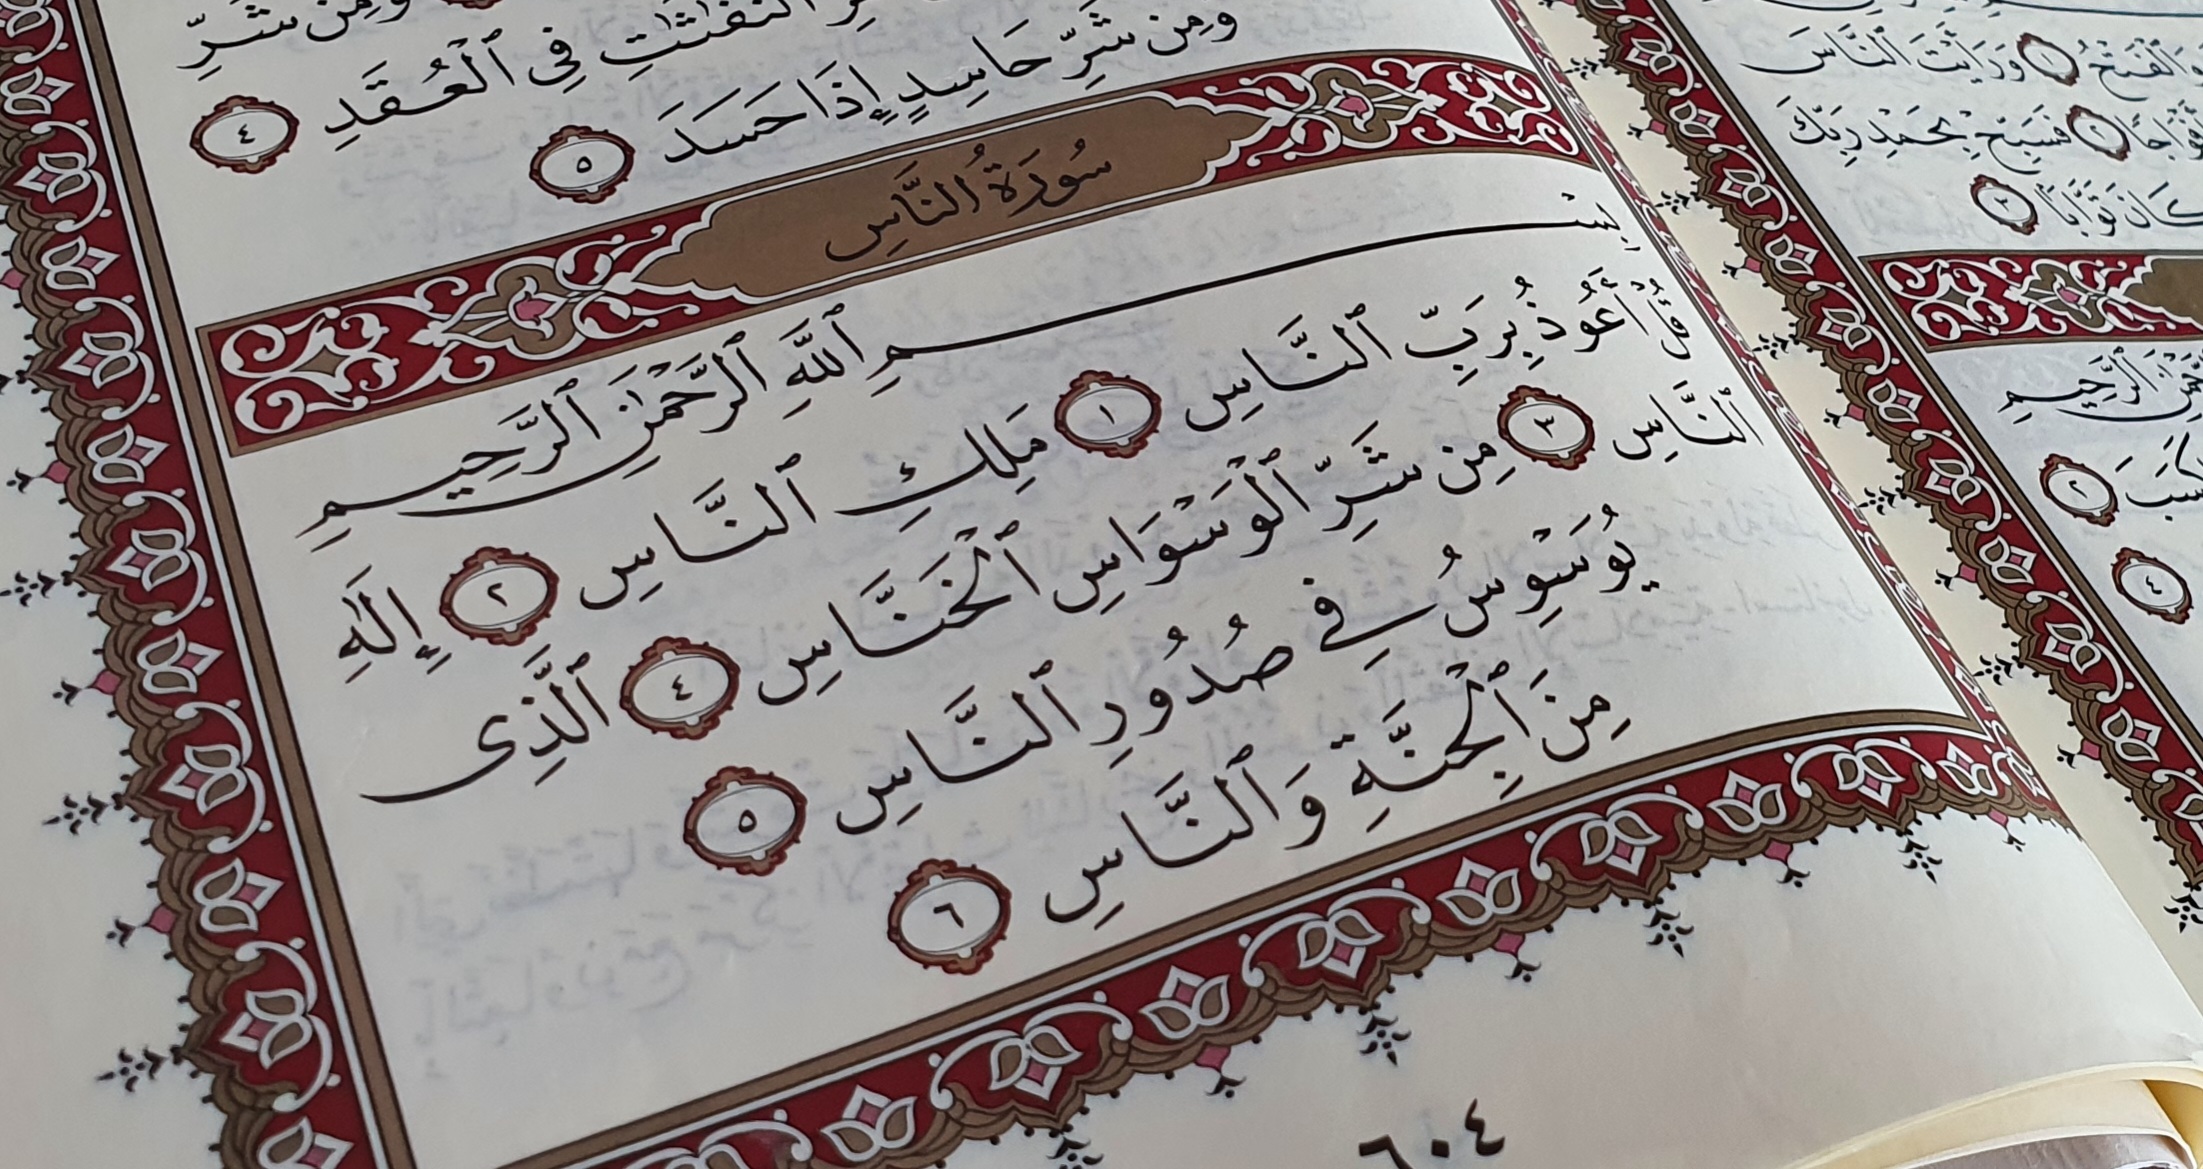 وَمِن شَرِّ
ٱلنَّفَّٰثَٰتِ فِي ٱلْعُقَدِ ٤
وَمِن شَرِّ حَاسِدٍ إِذَا حَسَدَ ٥
سُورَةُ النَّاسِ
بِسْمِ ٱللَّهِ ٱلرَّحْمَٰنِ ٱلرَّحِيمِ
قُلْ أَعُوذُ بِرَبِّ ٱلنَّاسِ ١ مَلِكِ ٱلنَّاسِ ٢ إِلَٰهِ
ٱلنَّاسِ ٣ مِن شَرِّ ٱلْوَسْوَاسِ ٱلْخَنَّاسِ ٤ ٱلَّذِى
يُوَسْوِسُ فِي صُدُورِ ٱلنَّاسِ ٥
مِنَ ٱلْجِنَّةِ وَٱلنَّاسِ ٦
٦٠٤
وَٱلْفَتْحُ ١ وَرَأَيْتَ ٱلنَّاسَ
أَفْوَاجًا ٢ فَسَبِّحْ بِحَمْدِ رَبِّكَ
كَانَ تَوَّابًا ٣
ٱلرَّحِيمِ
كَسَبَ ٢
٤